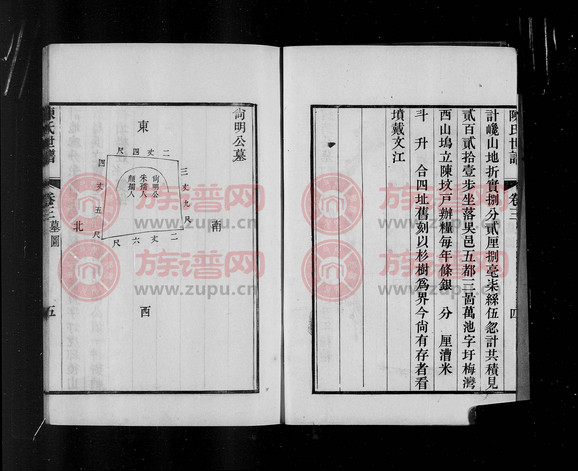 陳氏世譜
卷三
四
計嶘山地折實捌分貳厘捌毫柒絲伍忽計共積見
貳百貳拾壹步坐落吳邑五都三啚萬池字圩梅灣
西山塢立陳墳戸辦糧每年條銀 分 厘漕米
斗 升 合四址舊刻以杉樹爲界今尙有存者看
墳戴文江
尙明公墓
東
南
西
北
二丈四尺
三丈九尺
二丈六尺
四丈五尺
尙明公
朱孺人
顏孺人
陳氏世譜
卷三
墓圖
五
族谱网
www.zupu.cn
族谱网
www.zupu.cn
族谱网
www.zupu.cn
族谱网
www.zupu.cn